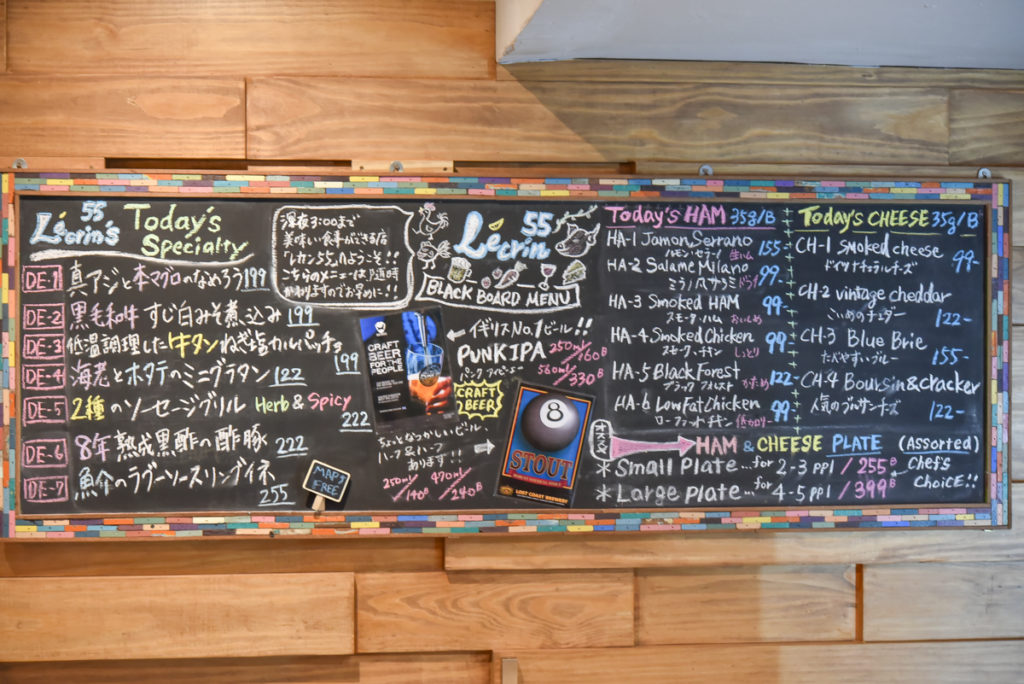 L'écrin's 55 Today's Specialty
DE-1 真アジと本マグロのなめろう 199
DE-2 黒毛和牛 すじ白みそ煮込み 199
DE-3 低温調理した牛タン ねぎ塩カルパッチョ 199
DE-4 海老とホタテのミニグラタン 122
DE-5 2種のソーセージグリル Herb & Spicy 222
DE-6 8年熟成黒酢の酢豚 222
DE-7 魚介のラヴーソースリングイネ 255
MAPS FREE
深夜3:00まで
美味い食事ができる店
「レカン55」へようこそ!!
こちらのメニューは随時
かわりますのでお早めに!!
L'ecrin 55
BLACK BOARD MENU
CRAFT
BEER
FOR THE
PEOPLE
← イギリスNo.1ビール!!
PUNK IPA
パンクアイピーエー
250ml/160B
560ml/330B
CRAFT BEER
ちょっとなつかしいビール、
ハーフ&ハーフ
あります!!
250ml/140B 470ml/240B
8
STOUT
LOST COAST BREWERY
Today's HAM 35g/B
HA-1 Jamon Serrano 155-
ハモン・セラーノ 生ハム
HA-2 Salame Milano 99-
ミラノ・サラミ ドライ
HA-3 Smoked HAM 99-
スモークハム おいしめ
HA-4 Smoked Chicken 99-
スモーク・チキン しっとり
HA-5 Black Forest 122-
ブラックフォレスト かため
HA-6 LowFat Chicken 99-
ローファットチキン 低カロリー
Today's CHEESE 35g/B
CH-1 smoked cheese 99-
ドイツナチュラルチーズ
CH-2 vintage cheddar 122-
こいめのチェダー
CH-3 Blue Brie 155-
たべやすいブルー
CH-4 Boursin & cracker 122-
人気のブルサンチーズ
HAM & CHEESE PLATE (Assorted)
* Small Plate...for 2-3 ppl / 255B
* Large Plate...for 4-5 ppl / 399B
chef's
choice!!